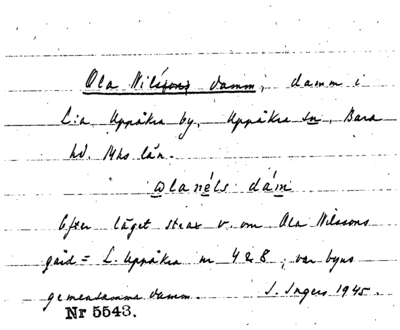 Ola Nilssons damm, damm i
L:a Uppåkra by, Uppåkra sn, Bara
hd. Mhs län.
ωlanéls dám
Efter läget strax v. om Ola Nilssons
gård = L. Uppåkra nr 4 & 8; var byns
gemensamma damm. I. Ingers 1945.
Nr 5543.